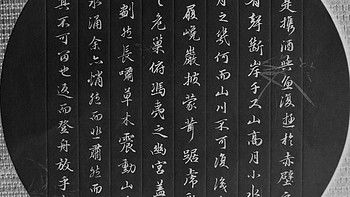 是攜酒與魚復遊於赤壁之
有聲斷岸千尺山高月小水
月之幾何而山川不可復識
履巉巖披蒙茸踞虎豹
之危巢俯馮夷之幽宮蓋
劃然長嘯草木震動山
水涌余亦悄然而悲肅然而
其不可留也返而登舟放乎